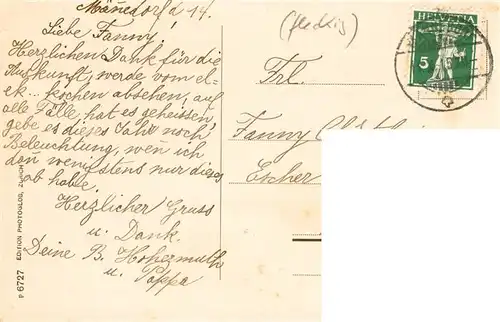 Mänedorf d 14.
Liebe Fanny!
Herzlichen Dank für die
Auskunft, werde vom el-
ek... kochen absehen, auf
alle Fälle, hat es geheissen,
gebe es dieses Jahr noch
Beleuchtung, wen ich
dan wenigstens nur dieses
ab habe.
Herzlicher Gruss
u. Dank.
Deine B. Hohermuth
u. Pappa
(fleckig)
HELVETIA
5
Frl.
Fanny
Escher
P 6727 EDITION PHOTOGLOB, ZÜRICH